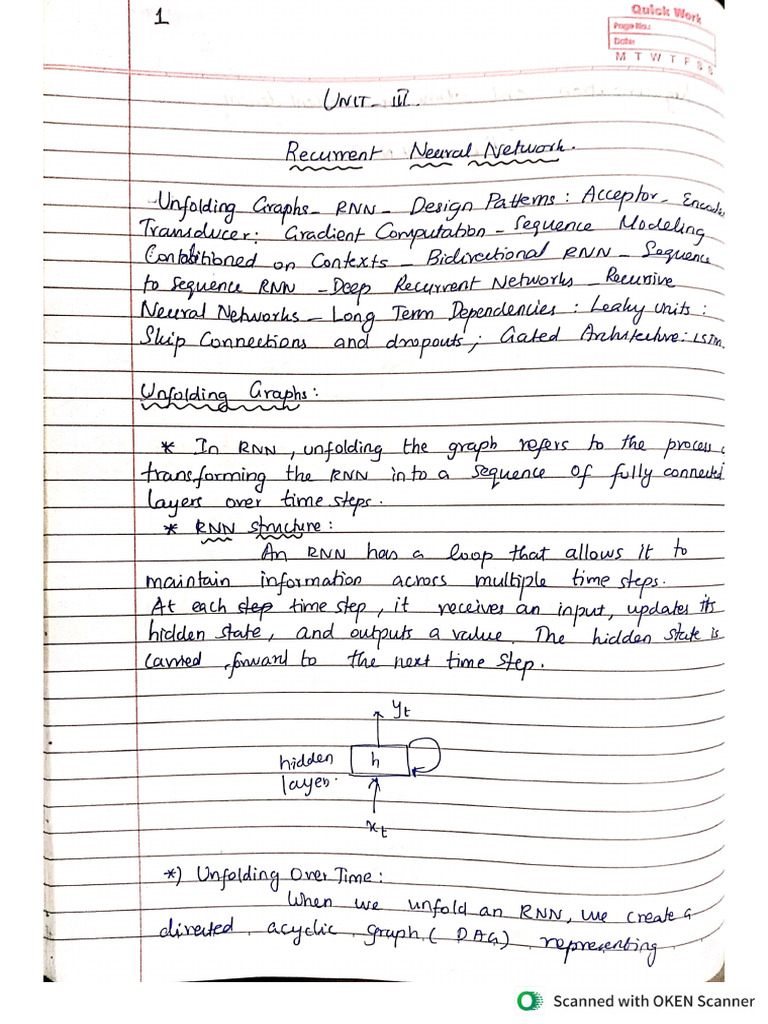 1
Quick Work
Page No.:
Date:
M T W T F S S
UNIT - III.
Recurrent Neural Network.
Unfolding Graphs - RNN - Design Patterns : Acceptor - Encoder
Transducer; Gradient Computation - Sequence Modeling
Contabitioned on Contexts - Bidirectional RNN - Sequence
to Sequence RNN - Deep Recurrent Networks - Recursive
Neural Networks - Long Term Dependencies : Leaky Units :
Skip Connections and dropouts; Gated Architecture: LSTM.
Unfolding Graphs :
* In RNN, unfolding the graph refers to the process
transforming the RNN into a sequence of fully connected
layers over time steps.
* RNN structure :
An RNN has a loop that allows it to
maintain information across multiple time steps.
At each step time step, it receives an input, updates its
hidden state, and outputs a value. The hidden state is
carried forward to the next time step.
yt
hidden layer.
h
xt
*) Unfolding Over Time :
When we unfold an RNN, we create a
directed acyclic graph (DAG) representing
Scanned with OKEN Scanner